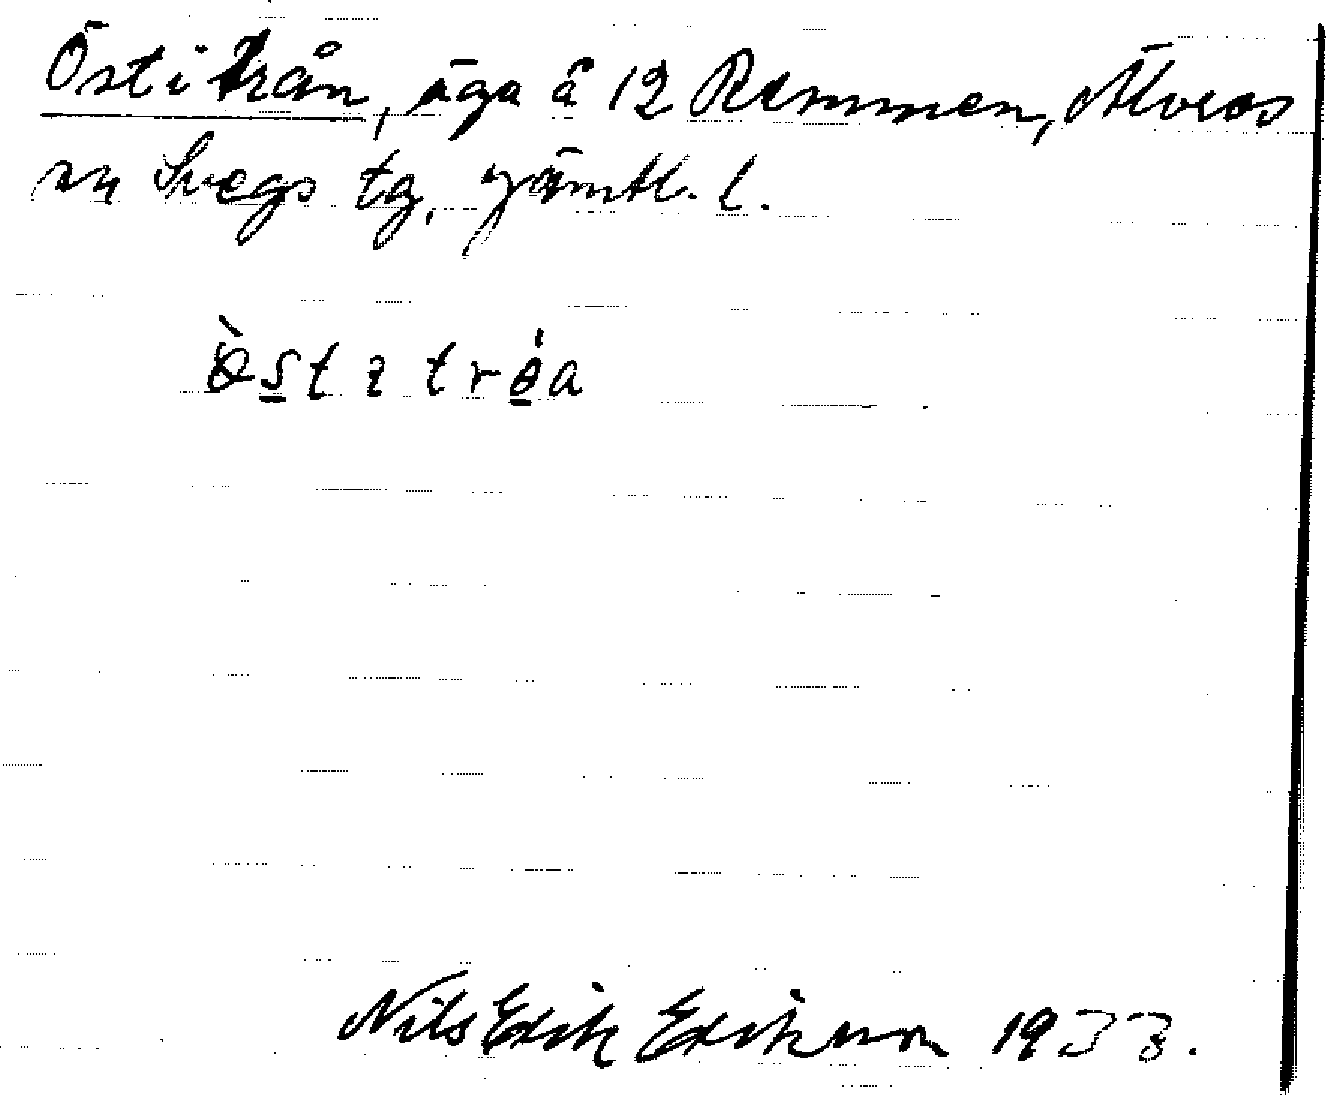 Östitrån, äga å 12 Remmen, Älvros
sn Svegs tg, Jämtl. l.
œ̀st ɿ trø̀a
Nils Erik Eriksson 1933.